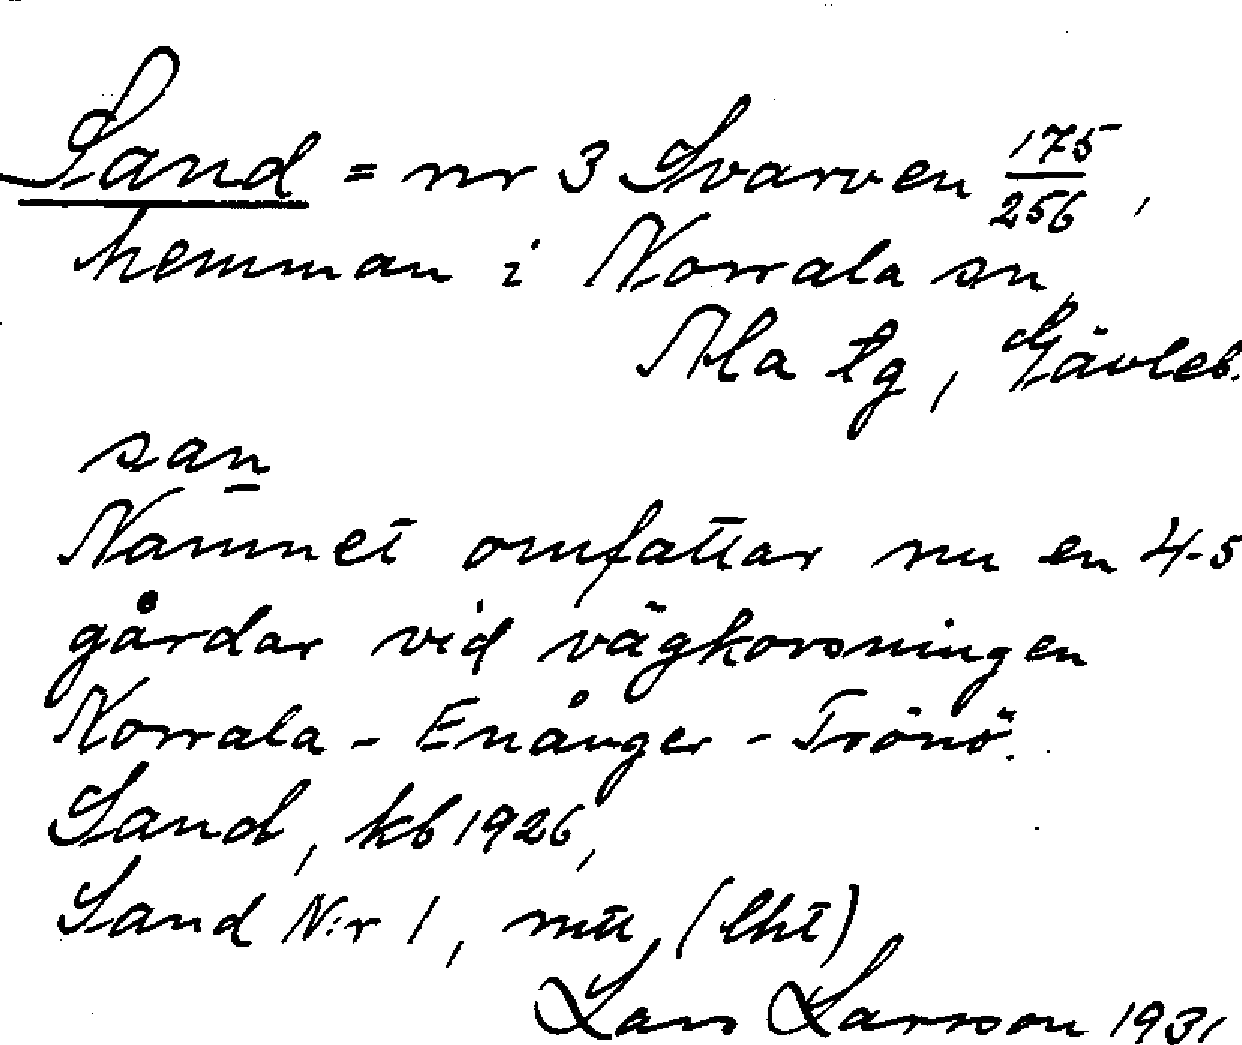 Sand = nr 3 Svarven 175/256,
hemman i Norrala sn,
Ala tg, Gävleb.
san
Namnet omfattar nu en 4-5
gårdar vid vägkorsningen
Norrala - Enånger - Trönö.
Sand, kb 1926,
Sand N:r 1, mtl, (lht)
Lars Larsson 1931